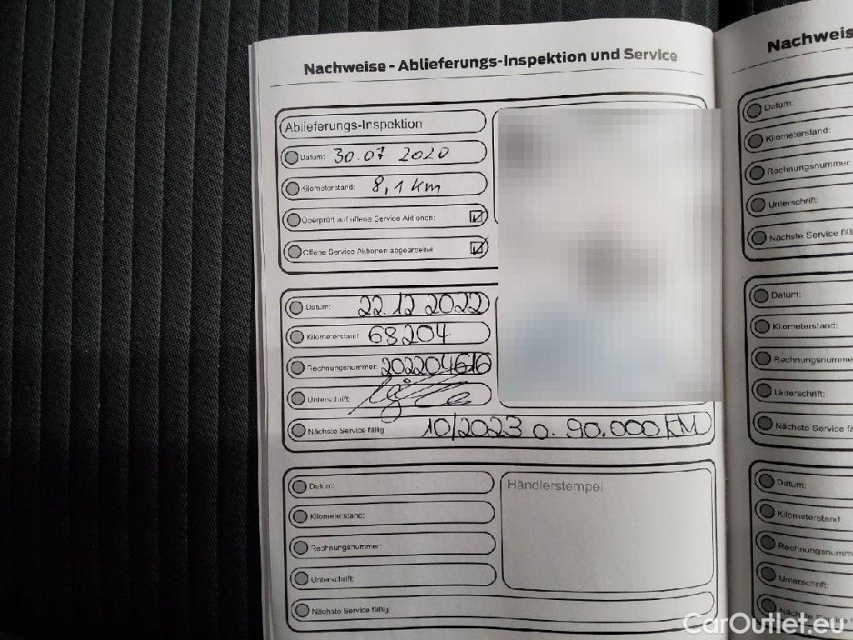 Nachweise - Ablieferungs-Inspektion und Service
Ablieferungs-Inspektion
Datum: 30.07 2020
Kilometerstand: 8,1 km
Überprüft auf offene Service Aktionen:
Offene Service Aktionen abgearbeitet
Datum: 22.12.2022
Kilometerstand: 63204
Rechnungsnummer: 202204616
Unterschrift:
Nächste Service fällig: 10/2023 o. 90.000 KM
Datum:
Kilometerstand:
Rechnungsnummer:
Unterschrift:
Nächste Service fällig:
Händlerstempel
Nachweis
Datum:
Kilometerstand:
Rechnungsnummer
Unterschrift:
Nächste Service fäll
Datum:
Kilometerstand:
Rechnungsnumme
Unterschrift:
Nächste Service fä
Datum:
Kilometerstand
Rechnungsnumm
Unterschrift:
Nächste Service
CarOutlet.eu